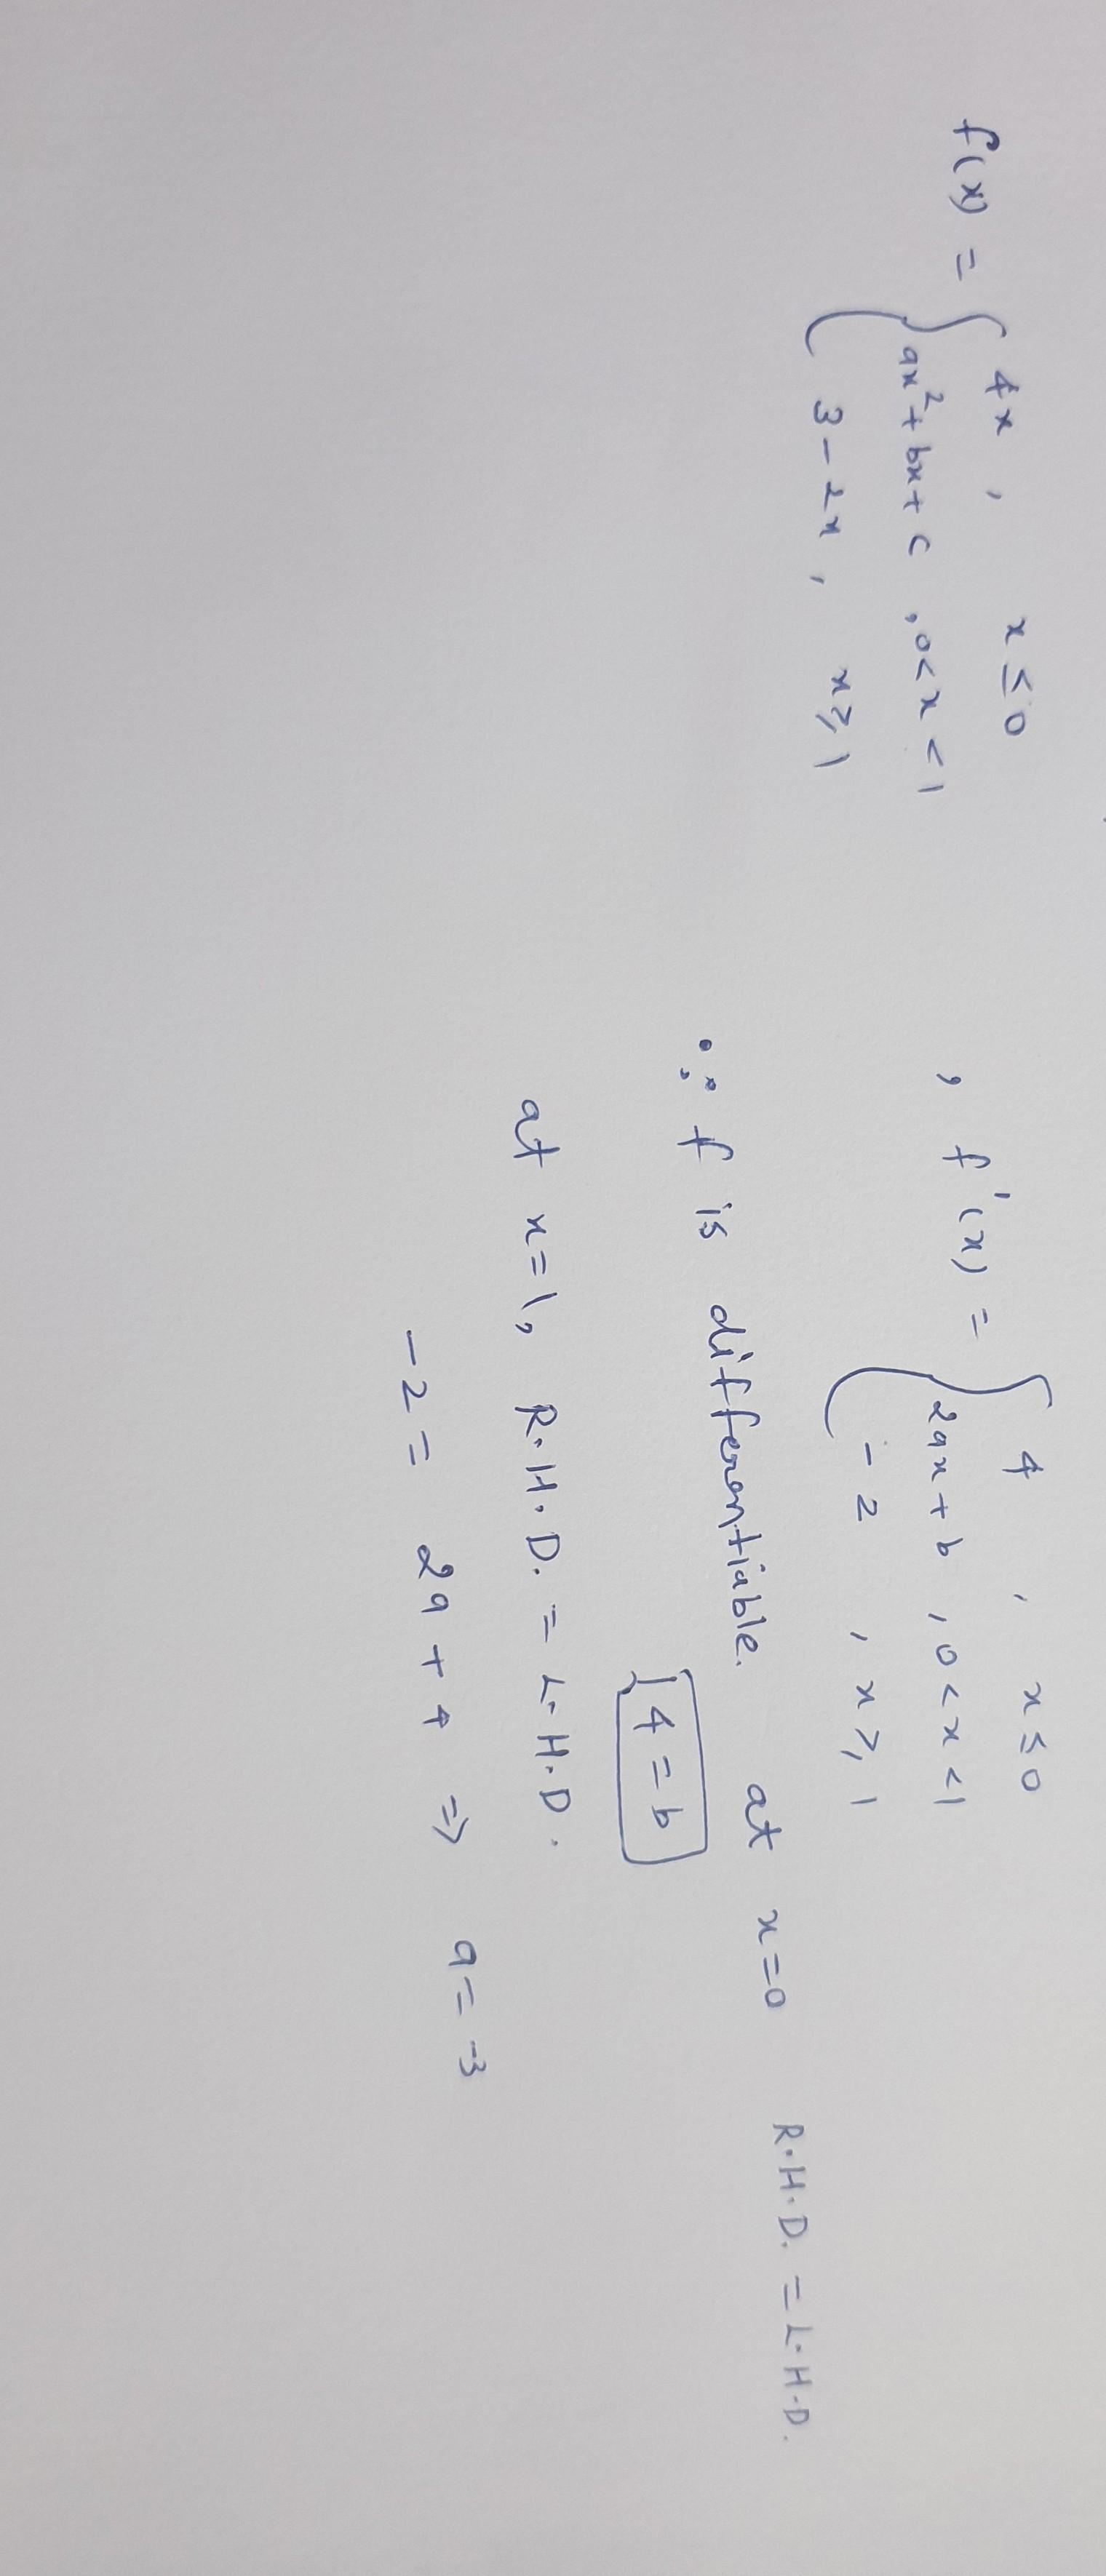 f(x) = { 4x , x ≤ 0
ax² + bx + c , 0 < x < 1
3 - 2x , x ≥ 1
, f'(x) = { 4 , x ≤ 0
2ax + b , 0 < x < 1
- 2 , x ≥ 1
∵ f is differentiable. at x = 0 R.H.D. = L.H.D.
4 = b
at x = 1, R.H.D. = L.H.D.
- 2 = 2a + 4 ⇒ a = -3